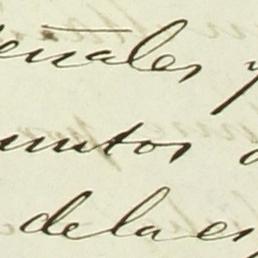 eñales y
untos
de la es